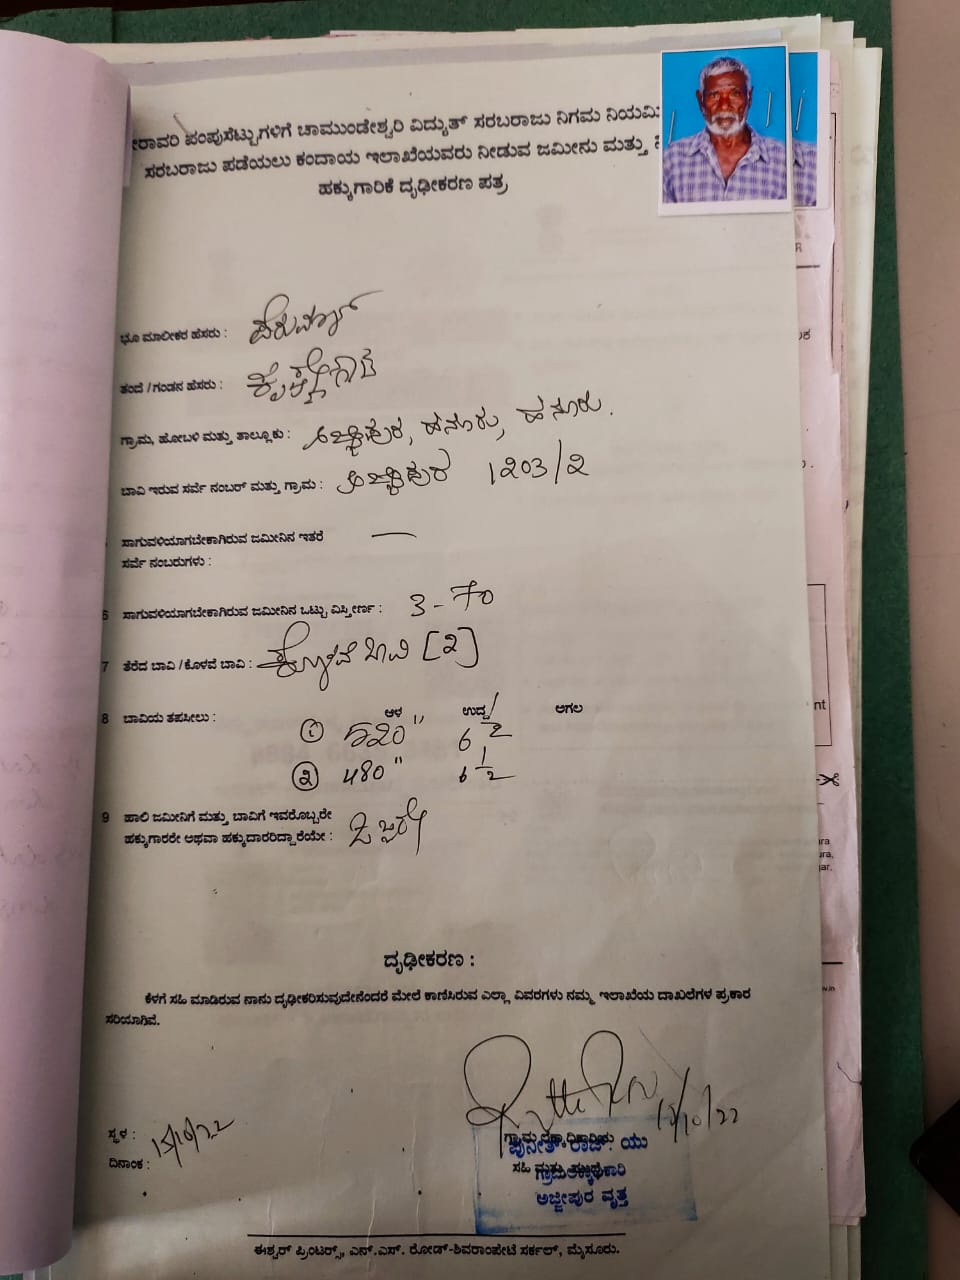 ನೀರಾವರಿ ಪಂಪುಸೆಟ್ಟುಗಳಿಗೆ ಚಾಮುಂಡೇಶ್ವರಿ ವಿದ್ಯುತ್ ಸರಬರಾಜು ನಿಗಮ ನಿಯಮಿ
ಸರಬರಾಜು ಪಡೆಯಲು ಕಂದಾಯ ಇಲಾಖೆಯವರು ನೀಡುವ ಜಮೀನು ಮತ್ತು
ಹಕ್ಕುಗಾರಿಕೆ ದೃಢೀಕರಣ ಪತ್ರ
ಭೂ ಮಾಲೀಕರ ಹೆಸರು : ಪೆರುಮಾಳ್
ತಂದೆ / ಗಂಡನ ಹೆಸರು :
ಗ್ರಾಮ, ಹೋಬಳಿ ಮತ್ತು ತಾಲ್ಲೂಕು : ಅಜ್ಜೀಪುರ, ಹನೂರು, ಹನೂರು.
ಬಾವಿ ಇರುವ ಸರ್ವೆ ನಂಬರ್ ಮತ್ತು ಗ್ರಾಮ : ಅಜ್ಜೀಪುರ 1203/2
ಸಾಗುವಳಿಯಾಗಬೇಕಾಗಿರುವ ಜಮೀನಿನ ಇತರೆ —
ಸರ್ವೆ ನಂಬರುಗಳು :
6 ಸಾಗುವಳಿಯಾಗಬೇಕಾಗಿರುವ ಜಮೀನಿನ ಒಟ್ಟು ವಿಸ್ತೀರ್ಣ : 3-70
7 ತೆರೆದ ಬಾವಿ / ಕೊಳವೆ ಬಾವಿ : ಕೊಳವೆ ಬಾವಿ [೨]
8 ಬಾವಿಯ ತಪಸೀಲು : ಆಳ ಉದ್ದ ಅಗಲ
① 520" 6 1/2
② 480" 6 1/2
9 ಹಾಲಿ ಜಮೀನಿಗೆ ಮತ್ತು ಬಾವಿಗೆ ಇವರೊಬ್ಬರೇ
ಹಕ್ಕುಗಾರರೇ ಅಥವಾ ಹಕ್ಕುದಾರರಿದ್ದಾರೆಯೇ : ಒಬ್ಬರೇ
ದೃಢೀಕರಣ :
ಕೆಳಗೆ ಸಹಿ ಮಾಡಿರುವ ನಾನು ದೃಢೀಕರಿಸುವುದೇನೆಂದರೆ ಮೇಲೆ ಕಾಣಿಸಿರುವ ಎಲ್ಲಾ ವಿವರಗಳು ನಮ್ಮ ಇಲಾಖೆಯ ದಾಖಲೆಗಳ ಪ್ರಕಾರ
ಸರಿಯಾಗಿವೆ.
13/10/22
ಸ್ಥಳ : 13/10/22
ದಿನಾಂಕ :
ಗ್ರಾಮ ಲೆಕ್ಕಾಧಿಕಾರಿಯ
ಪುನೀತ್ ರಾಜ್. ಯು
ಸಹಿ ಮತ್ತು ಮೊಹರು
ಗ್ರಾಮಲೆಕ್ಕಾಧಿಕಾರಿ
ಅಜ್ಜೀಪುರ ವೃತ್ತ
ಈಶ್ವರ್ ಪ್ರಿಂಟರ್ಸ್, ಎನ್.ಎಸ್. ರೋಡ್-ಶಿವರಾಂಪೇಟೆ ಸರ್ಕಲ್, ಮೈಸೂರು.